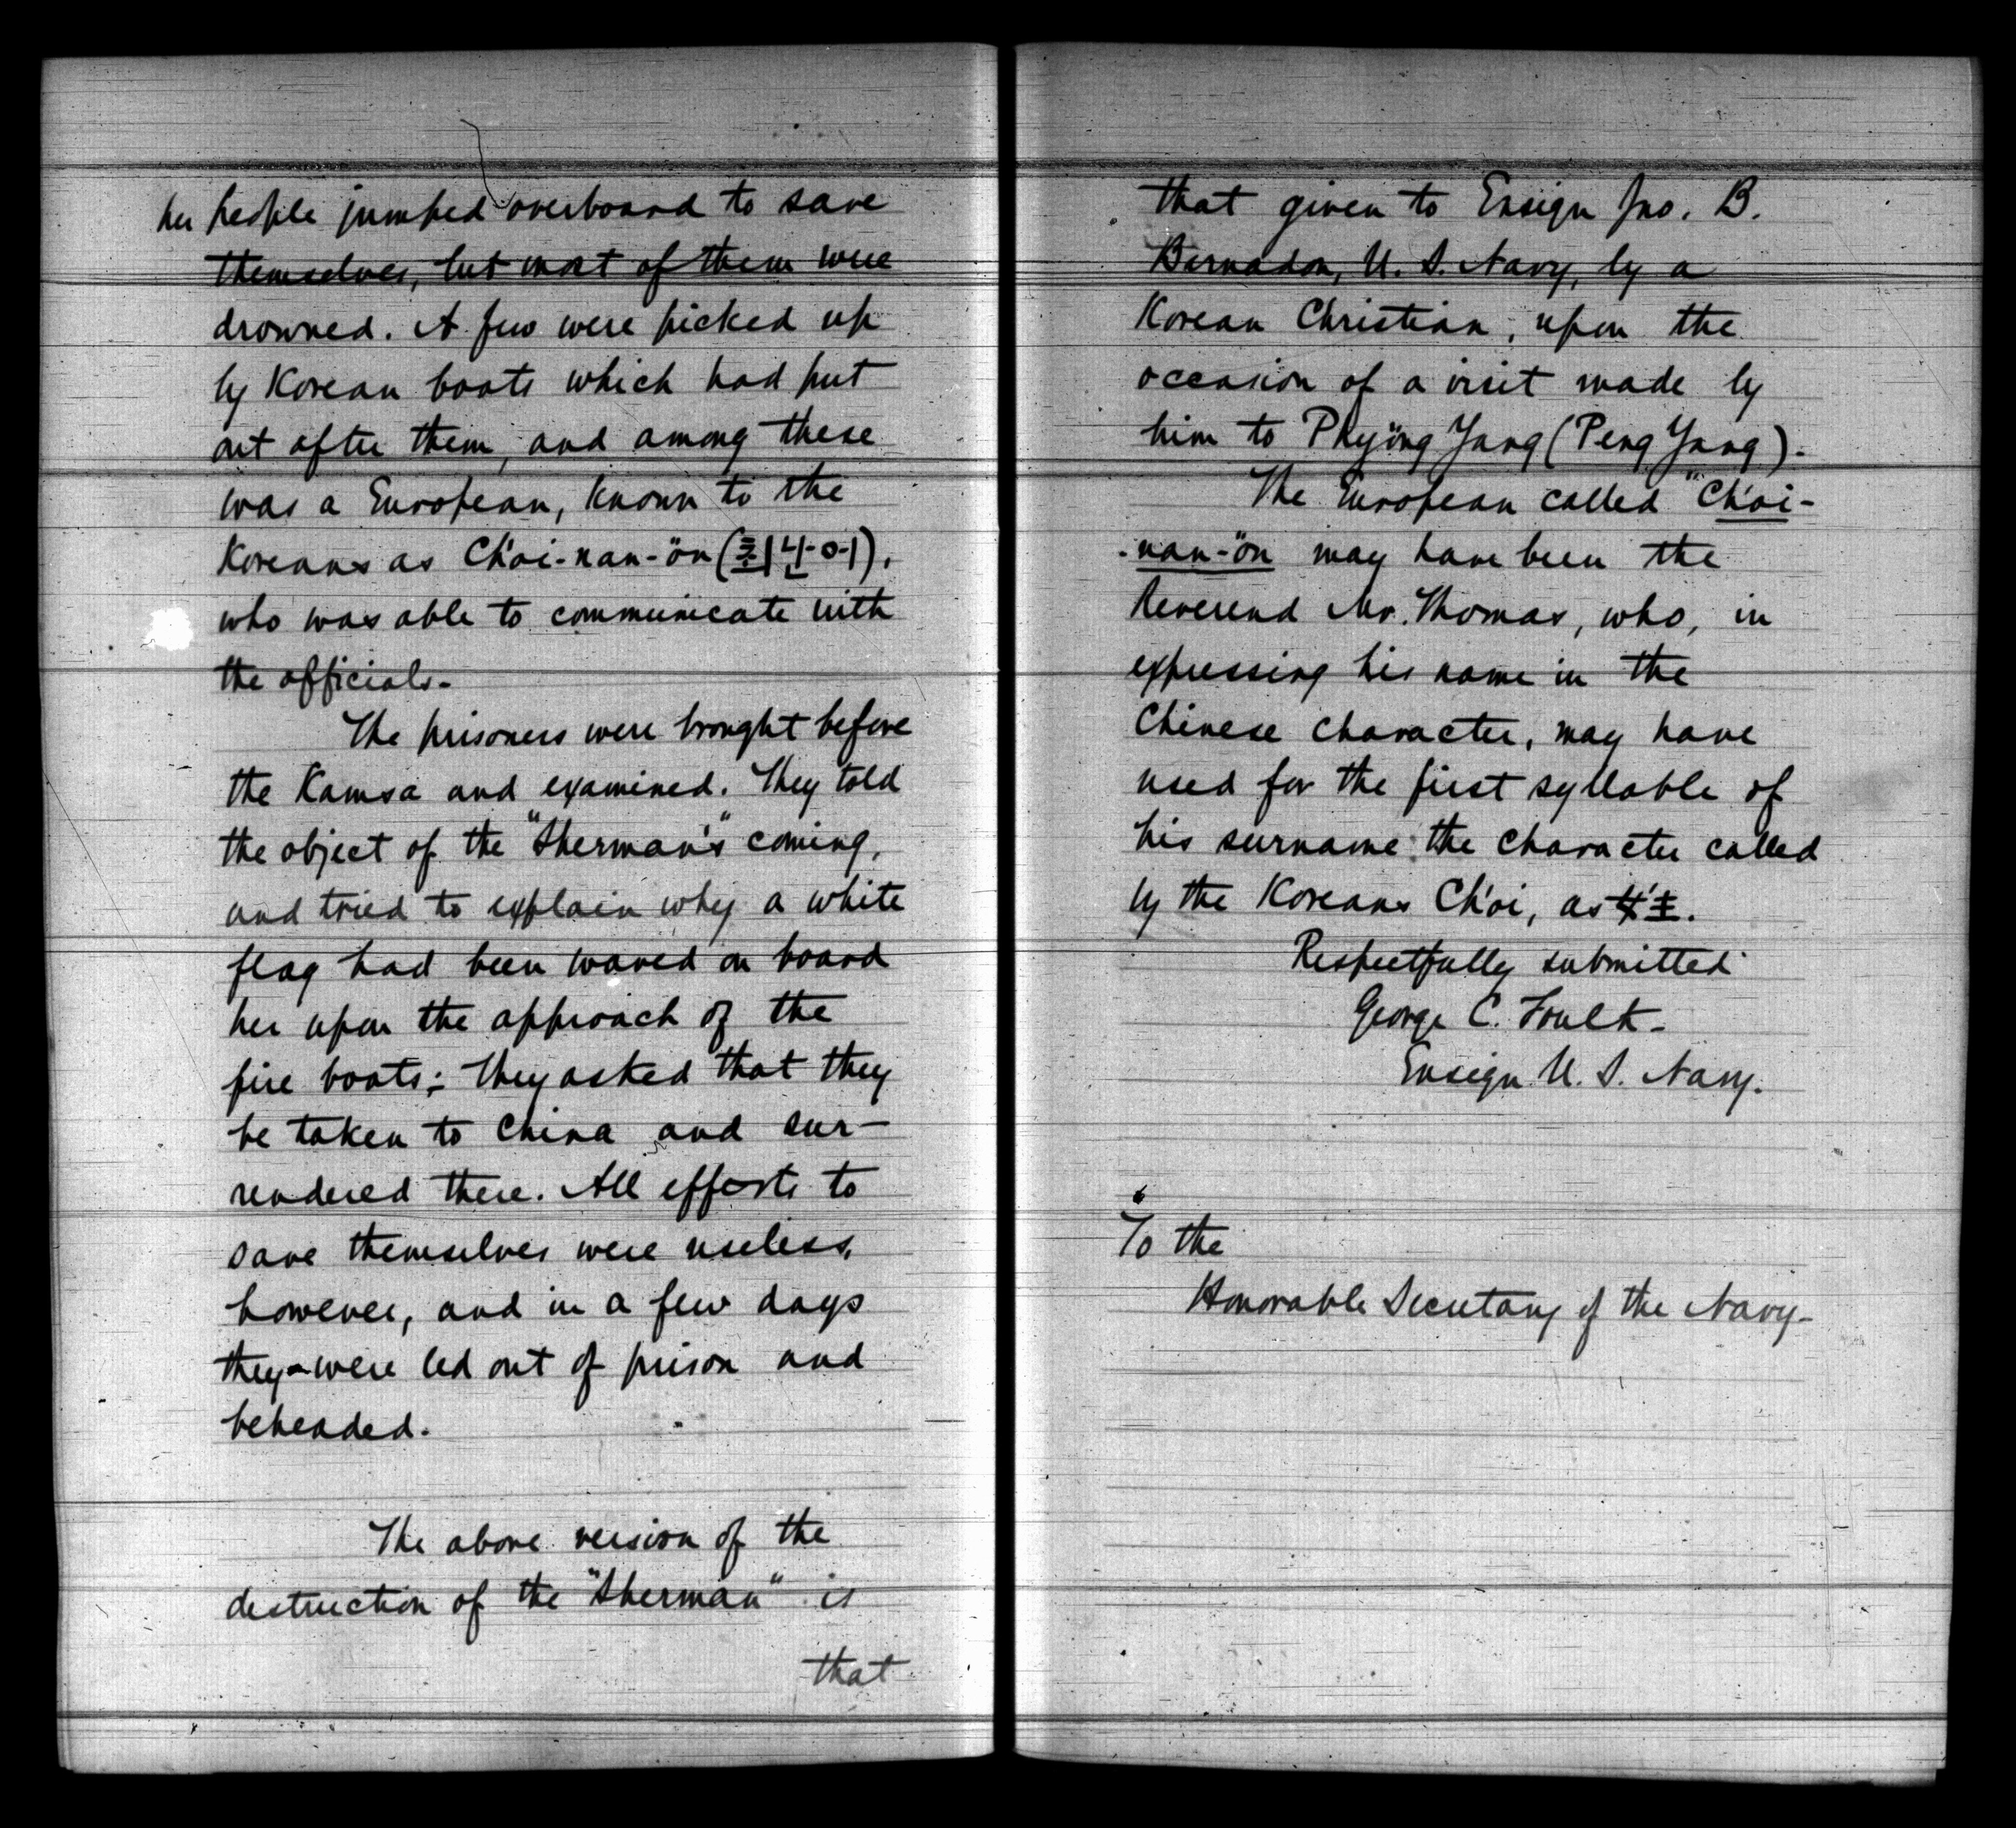 her people jumped overboard to save
themselves, but most of them were
drowned. A few were picked up
by Korean boats which had put
out after them, and among these
was a European, known to the
Koreans as Ch'oi-nan-ön (최난어),
who was able to communicate with
the officials.
The prisoners were brought before
the Kamsa and examined. They told
the object of the "Sherman's" coming,
and tried to explain why a white
flag had been waved on board
her upon the approach of the
fire boats; they asked that they
be taken to China and sur-
rendered there. All efforts to
save themselves were useless,
however, and in a few days
they were led out of prison and
beheaded.
The above version of the
destruction of the "Sherman" is
that
that given to Ensign Jno. B.
Bernadon, U. S. Navy, by a
Korean Christian, upon the
occasion of a visit made by
him to Phyöng Yang (Peng Yang).
The European called "Ch'oi-
-nan-ön may have been the
Reverend Mr. Thomas, who, in
expressing his name in the
Chinese character, may have
used for the first syllable of
his surname the character called
by the Koreans Ch'oi, as
Respectfully submitted
George C. Foulk-
Ensign U. S. Navy.
To the
Honorable Secretary of the Navy-